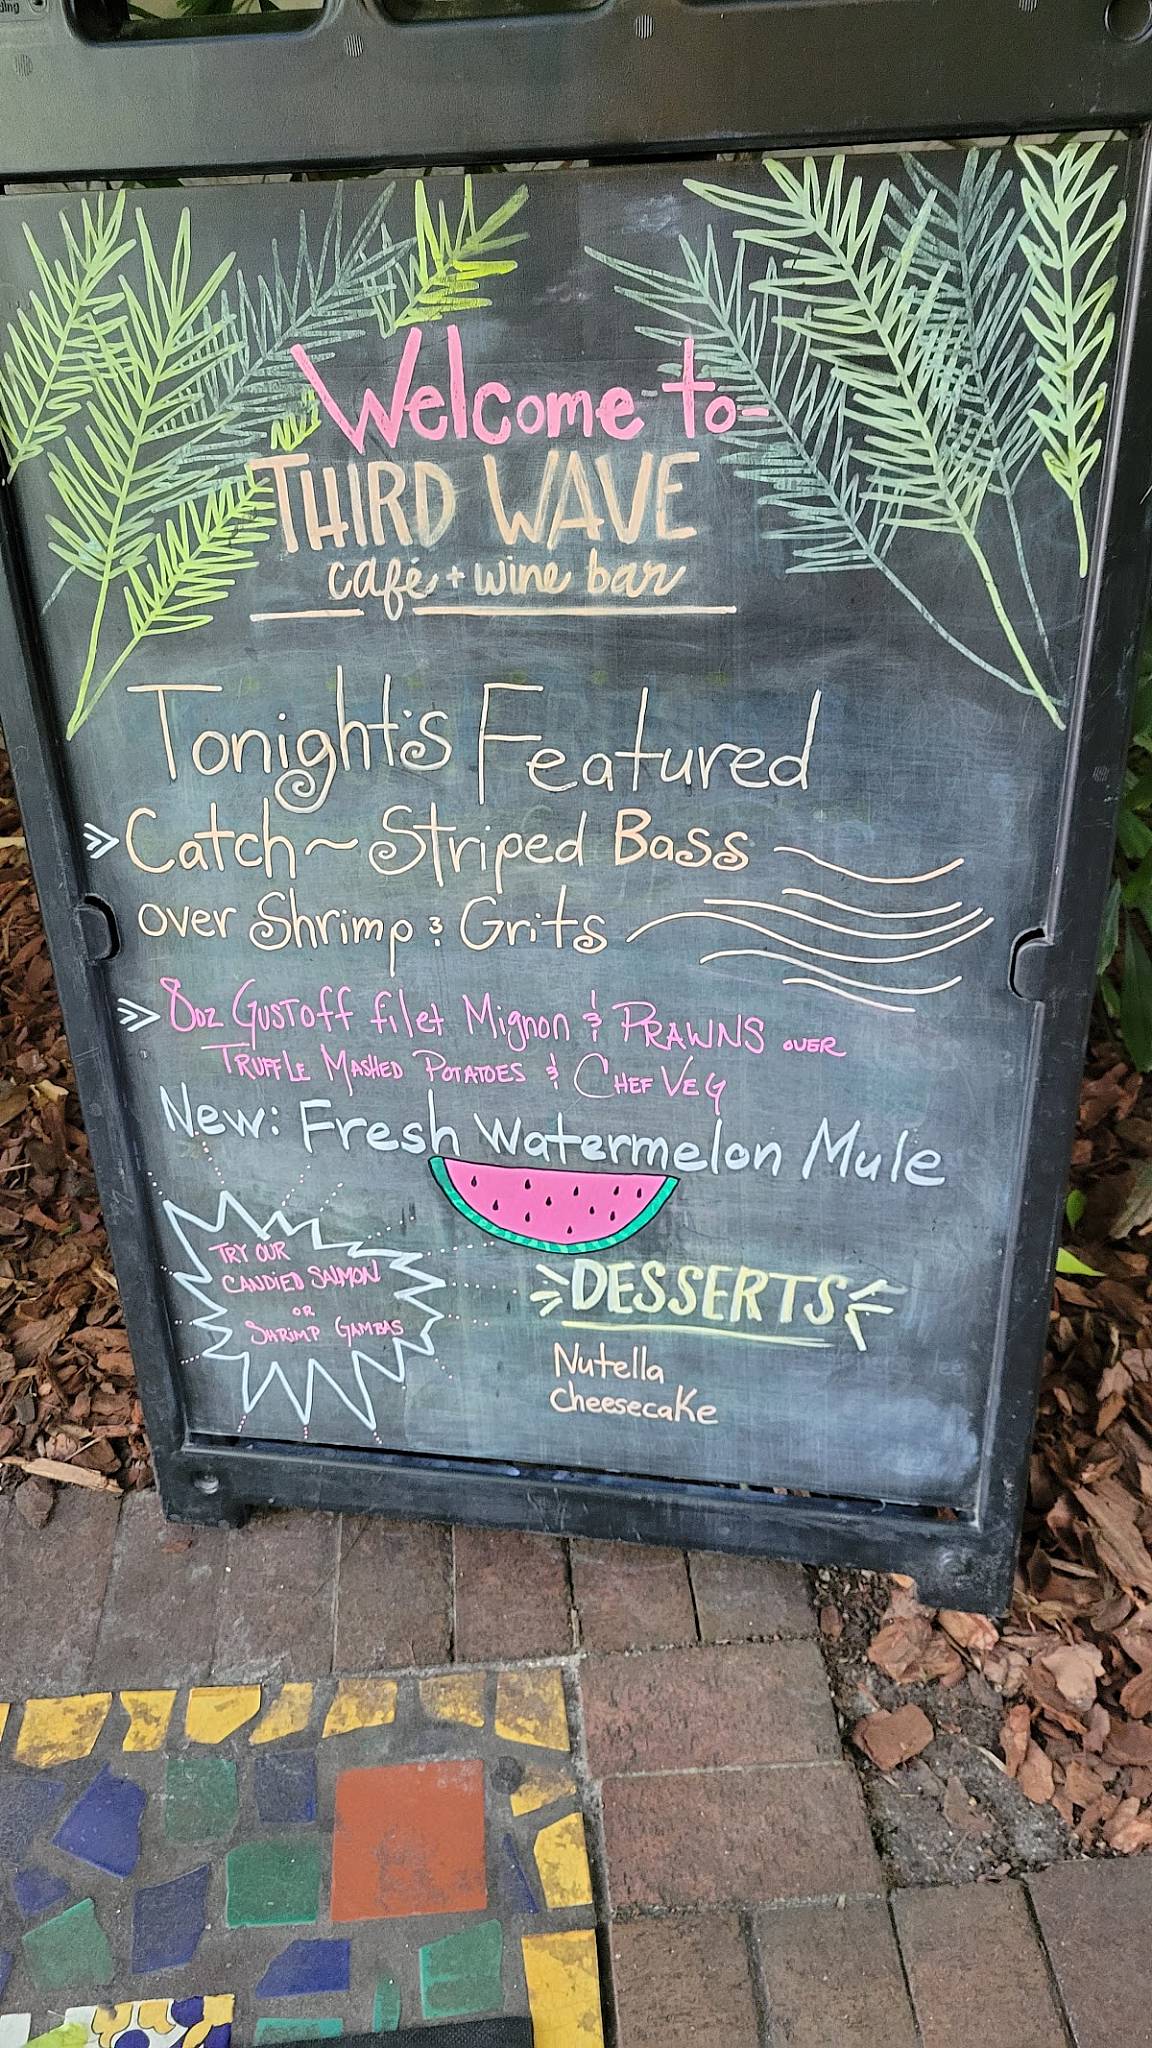 Welcome to-
THIRD WAVE
café + wine bar
Tonight's Featured
Catch ~ Striped Bass
over Shrimp & Grits
8oz Gustoff filet Mignon & PRAWNS OVER
TRUFFLE MASHED POTATOES & CHEF VEG
New: Fresh Watermelon Mule
TRY OUR
CANDIED SALMON
OR
SHRIMP GAMBAS
DESSERTS
Nutella
cheesecake